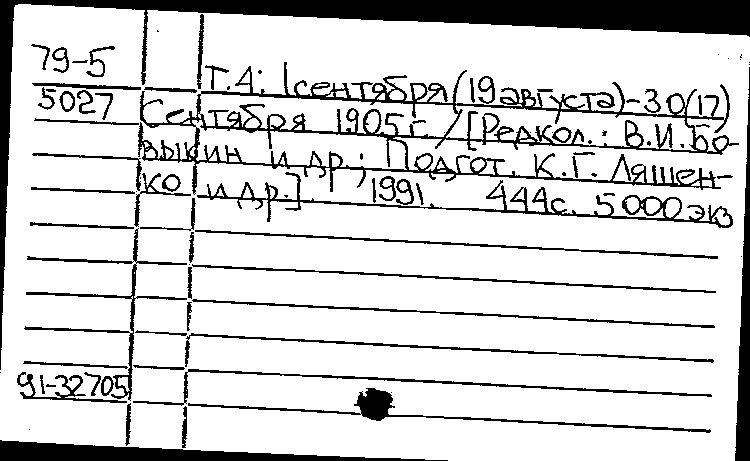 79-5
5027
Т.4: 1сентября(19августа)-30(17)
Сентября 1905г. / [Редкол.: В.И.Бо-
выкин и др.; Подгот. К.Г. Ляшен-
ко и др.]. 1991. 444с. 5000экз
91-32705